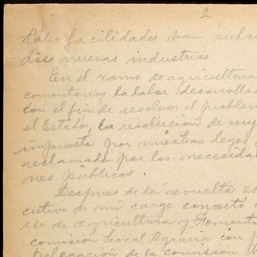 2
tales facilidades han
diso nuevas industrias
En el ramo de agricultura
comentarios la labor desarrollad
con el fin de resolver el problem
el Estado, la resolución de
impuesta por nuestras leyes
reclamado por las necesidad
nes públicas.
Despues de la revuelta
cutivo de mi cargo
rio de agricultura y Foment
comisión Local Agraria con
delegación de la comisión